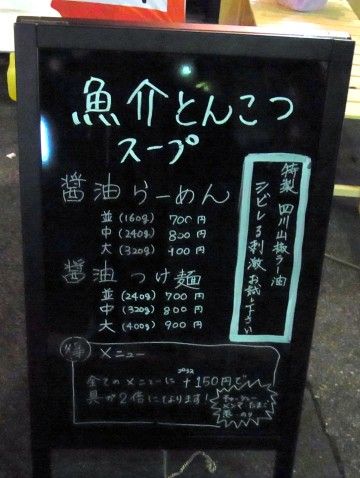 魚介とんこつ
スープ
醤油らーめん
並(160g) 700円
中(240g) 800円
大(320g) 900円
醤油つけ麺
並(240g) 700円
中(320g) 800円
大(400g) 900円
特製 四川山椒ラー油
シビレる刺激お試し下さい
メニュー
全てのメニューに +150円で
具が2倍になります!
チャーシュー
メンマ・たまご
のり